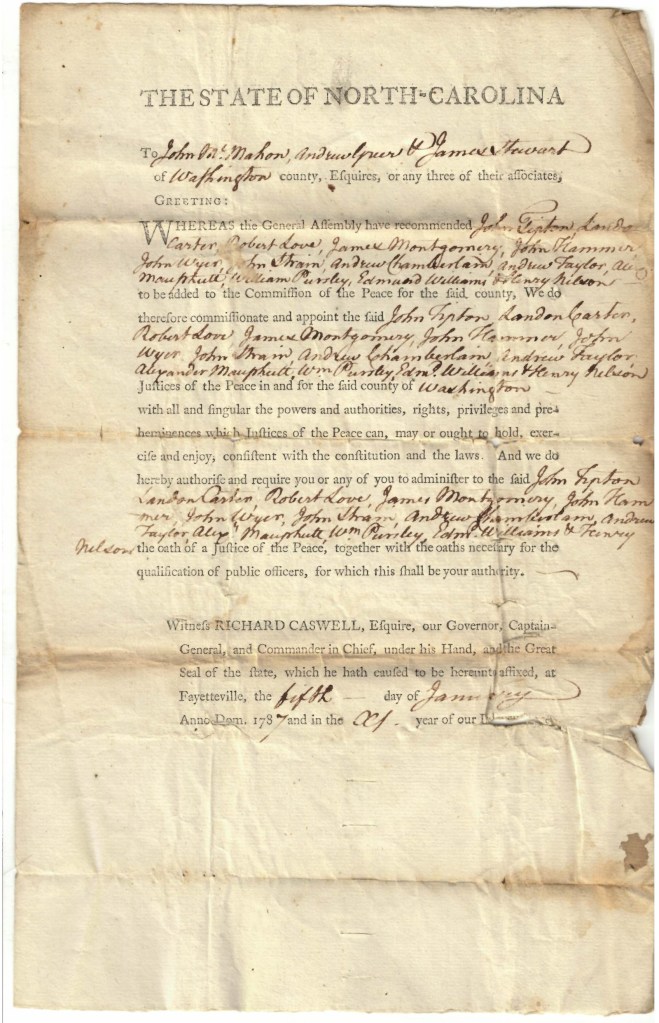 THE STATE OF NORTH-CAROLINA
To John McMahon, Andrew Greer & James Stewart
of Washington county, Esquires, or any three of their associates,
GREETING:
WHEREAS the General Assembly have recommended John Tipton, Landon
Carter, Robert Love, James Montgomery, John Hammer
John Wyer, John Strain, Andrew Chamberlain, Andrew Taylor, Alex
Mauphett, William Pursley, Edmund Williams & Henry Nelson
to be added to the Commission of the Peace for the said county, We do
therefore commissionate and appoint the said John Tipton Landon Carter,
Robert Love James Montgomery, John Hammer, John
Wyer, John Strain, Andrew Chamberlain, Andrew Taylor
Alexander Mauphett, Wm Pursley, Edmd. Williams & Henry Nelson
Justices of the Peace in and for the said county of Washington
with all and singular the powers and authorities, rights, privileges and pre-
heminences which Justices of the Peace can, may or ought to hold, exer-
cise and enjoy, consistent with the constitution and the laws. And we do
hereby authorise and require you or any of you to administer to the said John Tipton
Landon Carter, Robert Love, James Montgomery, John Ham
mer, John Wyer, John Strain, Andrew Chamberlain, Andrew
Taylor Alexr Mauphett, Wm Pursley, Edmd. Williams & Henry
Nelson the oath of a Justice of the Peace, together with the oaths necesary for the
qualification of public officers, for which this shall be your authority.
Witness RICHARD CASWELL, Esquire, our Governor, Captain-
General, and Commander in Chief, under his Hand, and the Great
Seal of the state, which he hath caused to be hereunto affixed, at
Fayetteville, the fifth day of January
Anno Dom. 1787 and in the XI. year of our